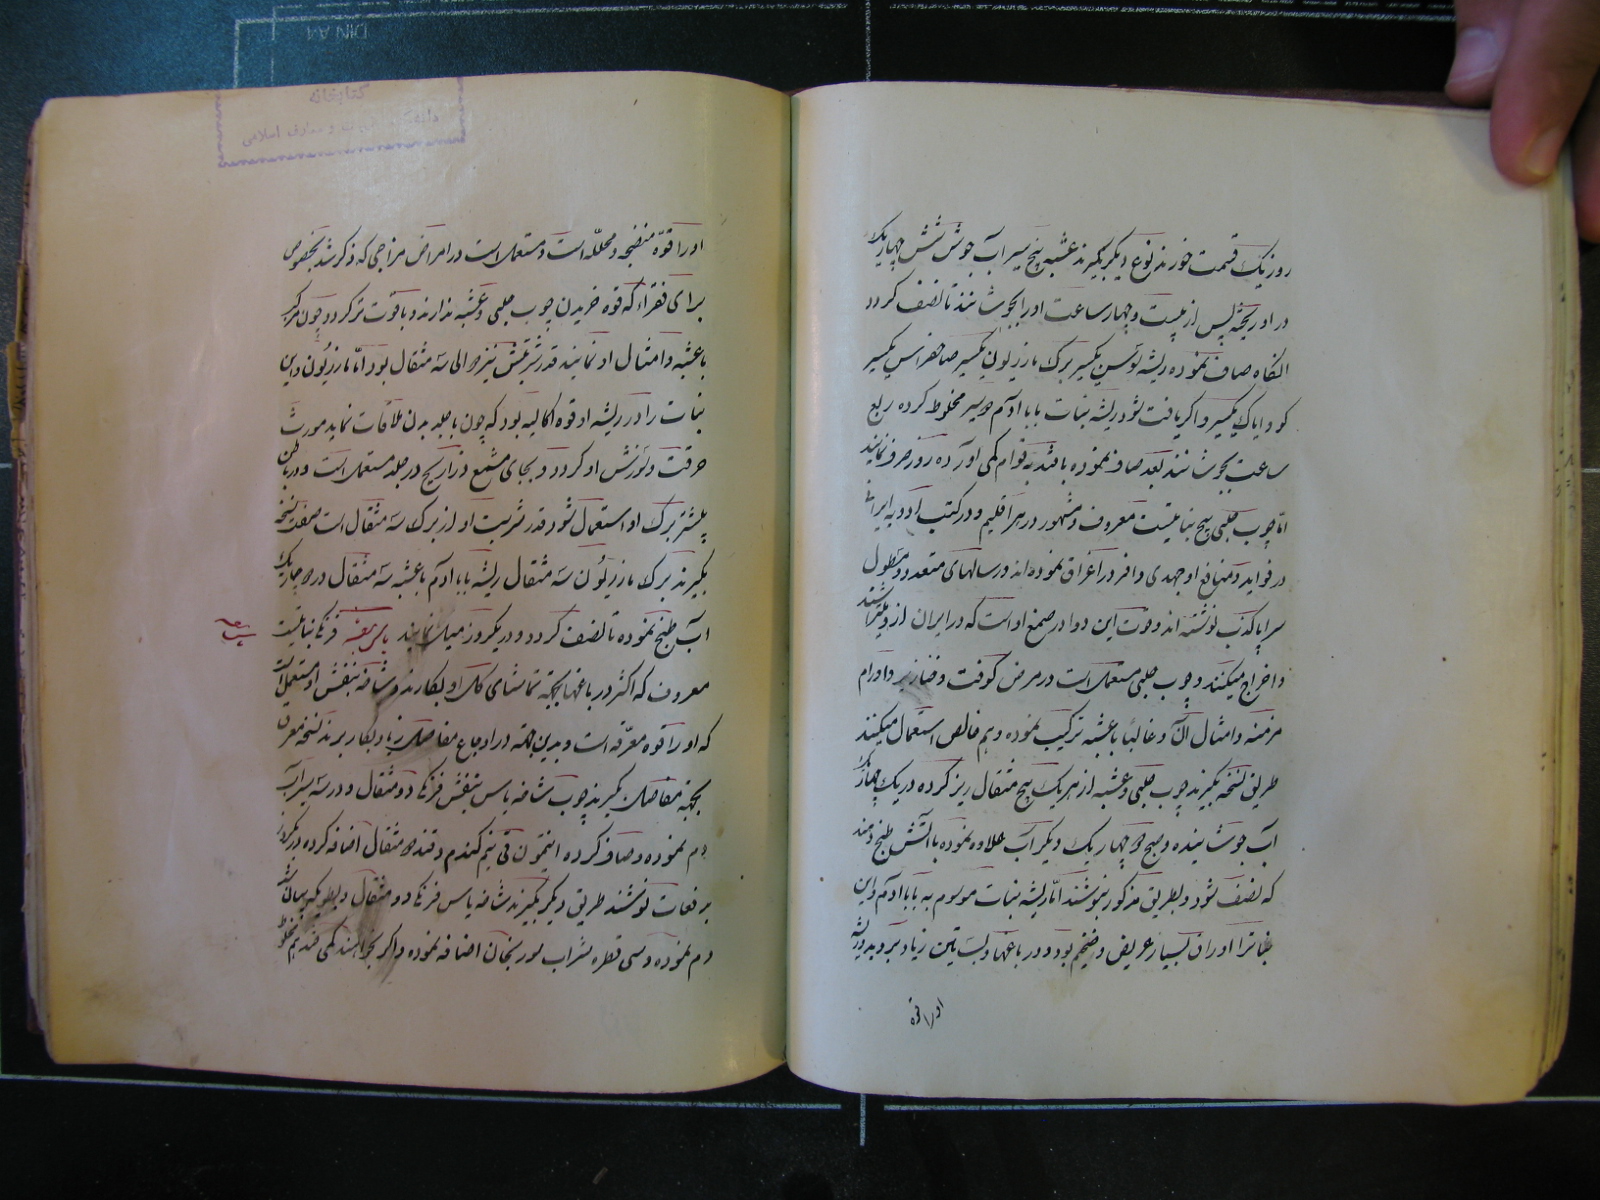 روز یک قسمت خورند نوع دیگر بگیرند عشبه پنج سیر آب جوش شش چهاریک
در او ریخته پس از بیست و چهار ساعت او را بجوشانند تا نصف گردد
انگاه صاف نموده ریشه توسن یکسیر برک مازریون یکسیر صاصفراس یکسیر
کوایاک یکسیر و اکر یافت نشود ریشه نبات بابا آدم دو سیر مخلوط کرده ربع
ساعت بجوشانند بعد صاف نموده با قند به قوام کمی آورده روز صرف نمایند
امّا چوب چینی بیخ نباتیست معروف و مشهور در هر اقلیم و در کتب ادویه ایران
در فواید و منافع او جهدی وافر در اغراق نموده اند و رسالهای متعدد و مطول
سراپا کذب نوشته اند و قوت این دوا در صمغ او است که در ایران از او بیشتر
و اخراج میکنند و چوب چینی مستعمل است در مرض کوفت و خنازیر و اورام
مزمنه و امثال آن و غالبا با عشبه ترکیب نموده و هم خالص استعمال میکنند
طریق نسخه بگیرند چوب چینی و عشبه از هر یک پنج مثقال ریز کرده در یک چهاریک
آب جوشانیده و صبح دو چهاریک دیگر آب علاوه نموده با آتش طبخ دهند
که نصف شود و بطریق مذکور بنوشند امّا ریشه نبات موسوم به بابا آدم و این
نبات را اوراق بسیار عریض و ضخیم بود و در باغها و بساتین زیاد بروید و ریشه
او را قوه
او را قوّه منضجه و محللّه است و مستعمل است در امراض مزاجی که ذکر شد بخصوص
برای فقراء که قوه خریدن چوب چینی و عشبه ندارند و با قوت تر گردد چون مرکب
با عشبه و امثال او نمایند قدر شربتش نیز دو الی سه مثقال بود امّا مازریون و این
نبات را در ریشه او قوه اکالیه بود که چون با جلد بدن ملاقات نماید مورث
حرقت و سوزش او گردد و بجای مشمع ذراریح در جلد مستعمل است و در باطن
بیشتر برک او استعمال شود قدر شربت او از برک سه مثقال است صفت نسخه
بگیرند برک مازریون سه مثقال ریشه بابا آدم با عشبه سه مثقال در دو چهاریک
آب طبخ نموده تا نصف گردد و در یکروز میل نمایند یاس بنفش فرنگی نباتیست
معروف که اکثر در باغها بجهة تماشای کل او بکارند و شاخه بنفش او مستعمل است
که او را قوه معرّقه است و بدین جهة در اوجاع مفاصل زیاد بکار برند نسخه معرق
بجهة مفاصل بگیرند چوب شاخه یاس بنفش فرنگی دو مثقال و در سه سیر آب
دم نموده و صاف کرده انتیمون قی نیم کندم و قند دو مثقال اضافه کرده در یکروز
بدفعات نوشند طریق دیگر بگیرند شاخه یاس فرنگی دو مثقال و بطریقیکه بیان شد
دم نموده و سی قطره شراب سورنجان اضافه نموده و اکر بخواهند کمی قند هم مخلوط